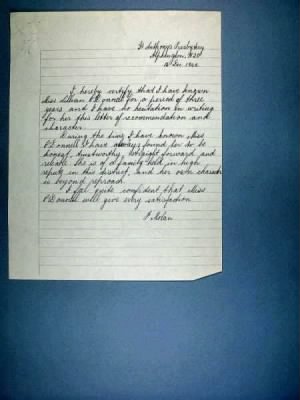 St Anthony's Presbytery
12th Dec 1944
I hereby certify that I have known
Miss Lillian O'Donnell for a period of three
years and I have no hesitation in writing
for her this letter of recommendation and
character.
During the time I have known Miss
O'Donnell I have always found her to be
honest, trustworthy, straight forward and
reliable. She is of a family held in high
repute in this district, and her own character
is beyond reproach.
I feel quite confident that Miss
O'Donnell will give every satisfaction.
Nolan